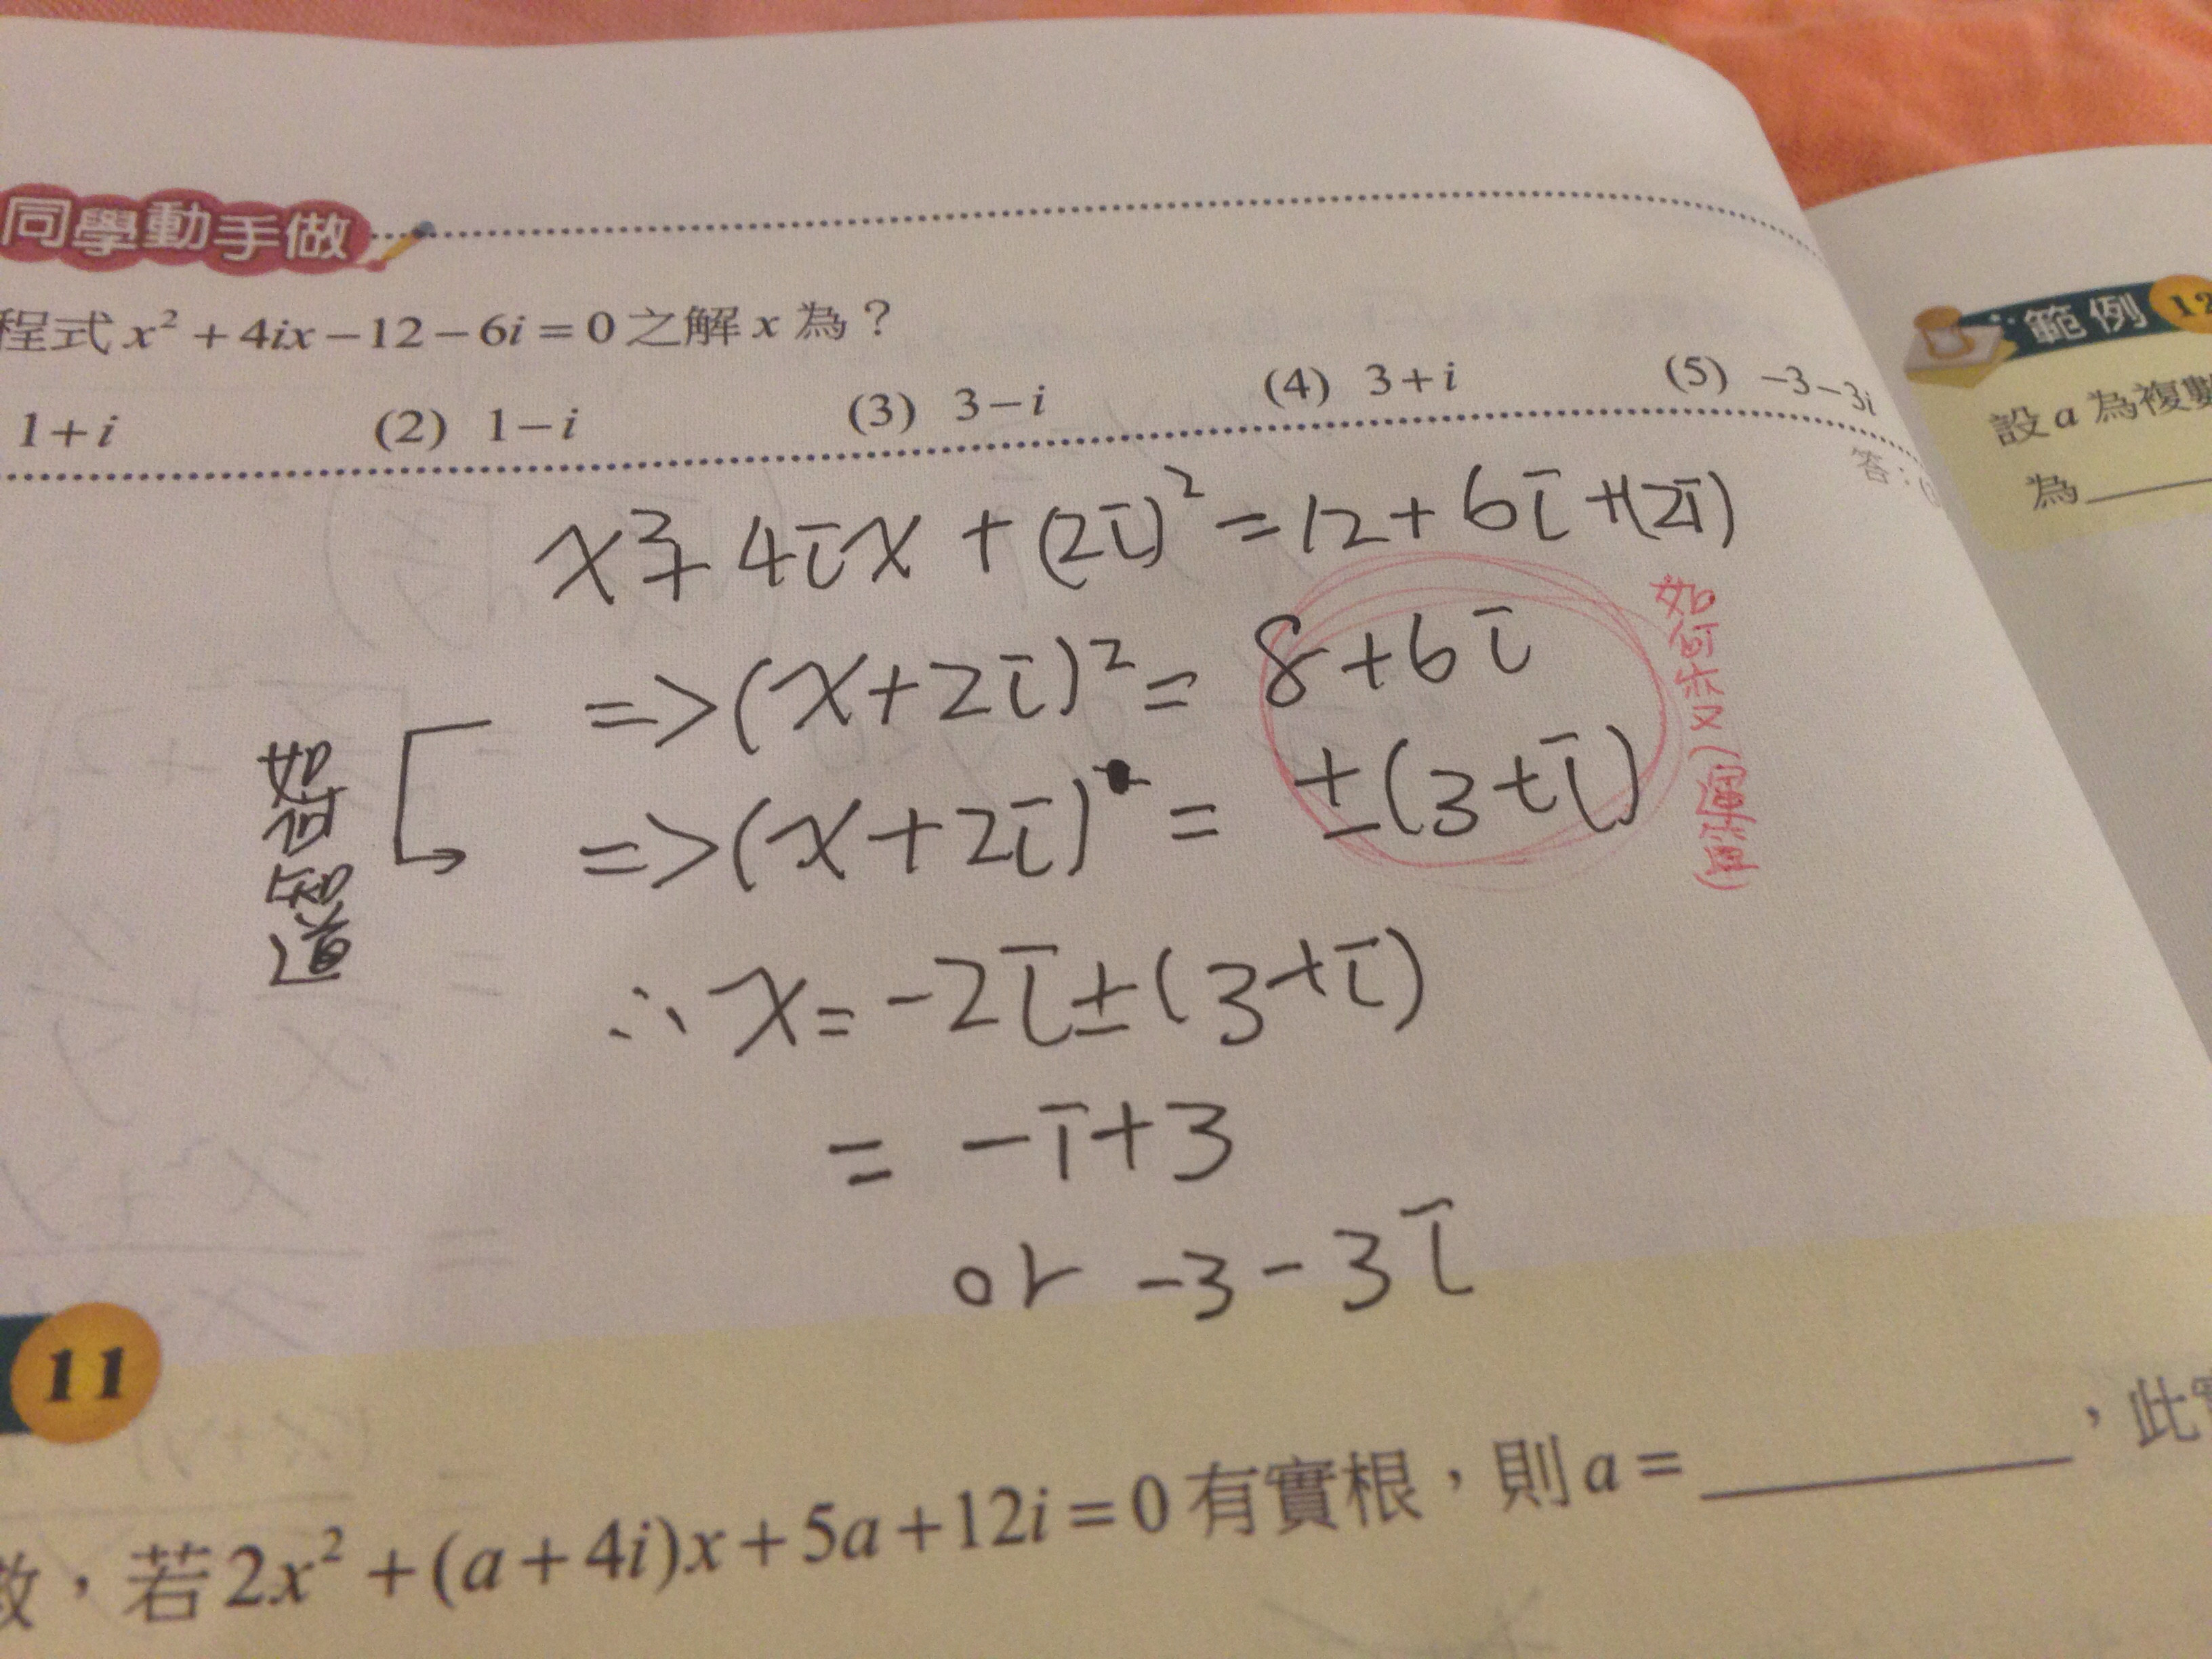 同學動手做
程式 x² + 4ix − 12 − 6i = 0 之解 x 為？
1+i (2) 1−i (3) 3−i (4) 3+i (5) −3−3i
答：(
x² + 4ix + (2i)² = 12 + 6i + (2i)
=> (x+2i)² = 8+6i
=> (x+2i) = ±(3+i)
如何知道
如何求(運算)
∴ x = −2i ± (3+i)
= −i+3
or −3−3i
11
，若 2x² + (a+4i)x + 5a + 12i = 0 有實根，則 a = ______，此
範例 12
設 a 為複數
為______